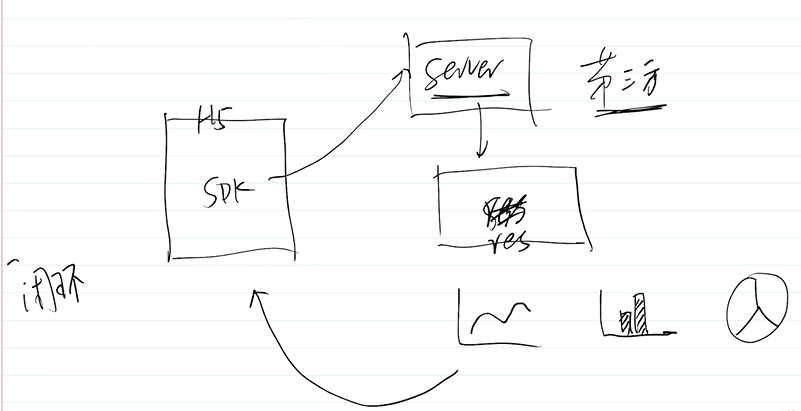 H5
SDK
Server
第三方
res
闭环